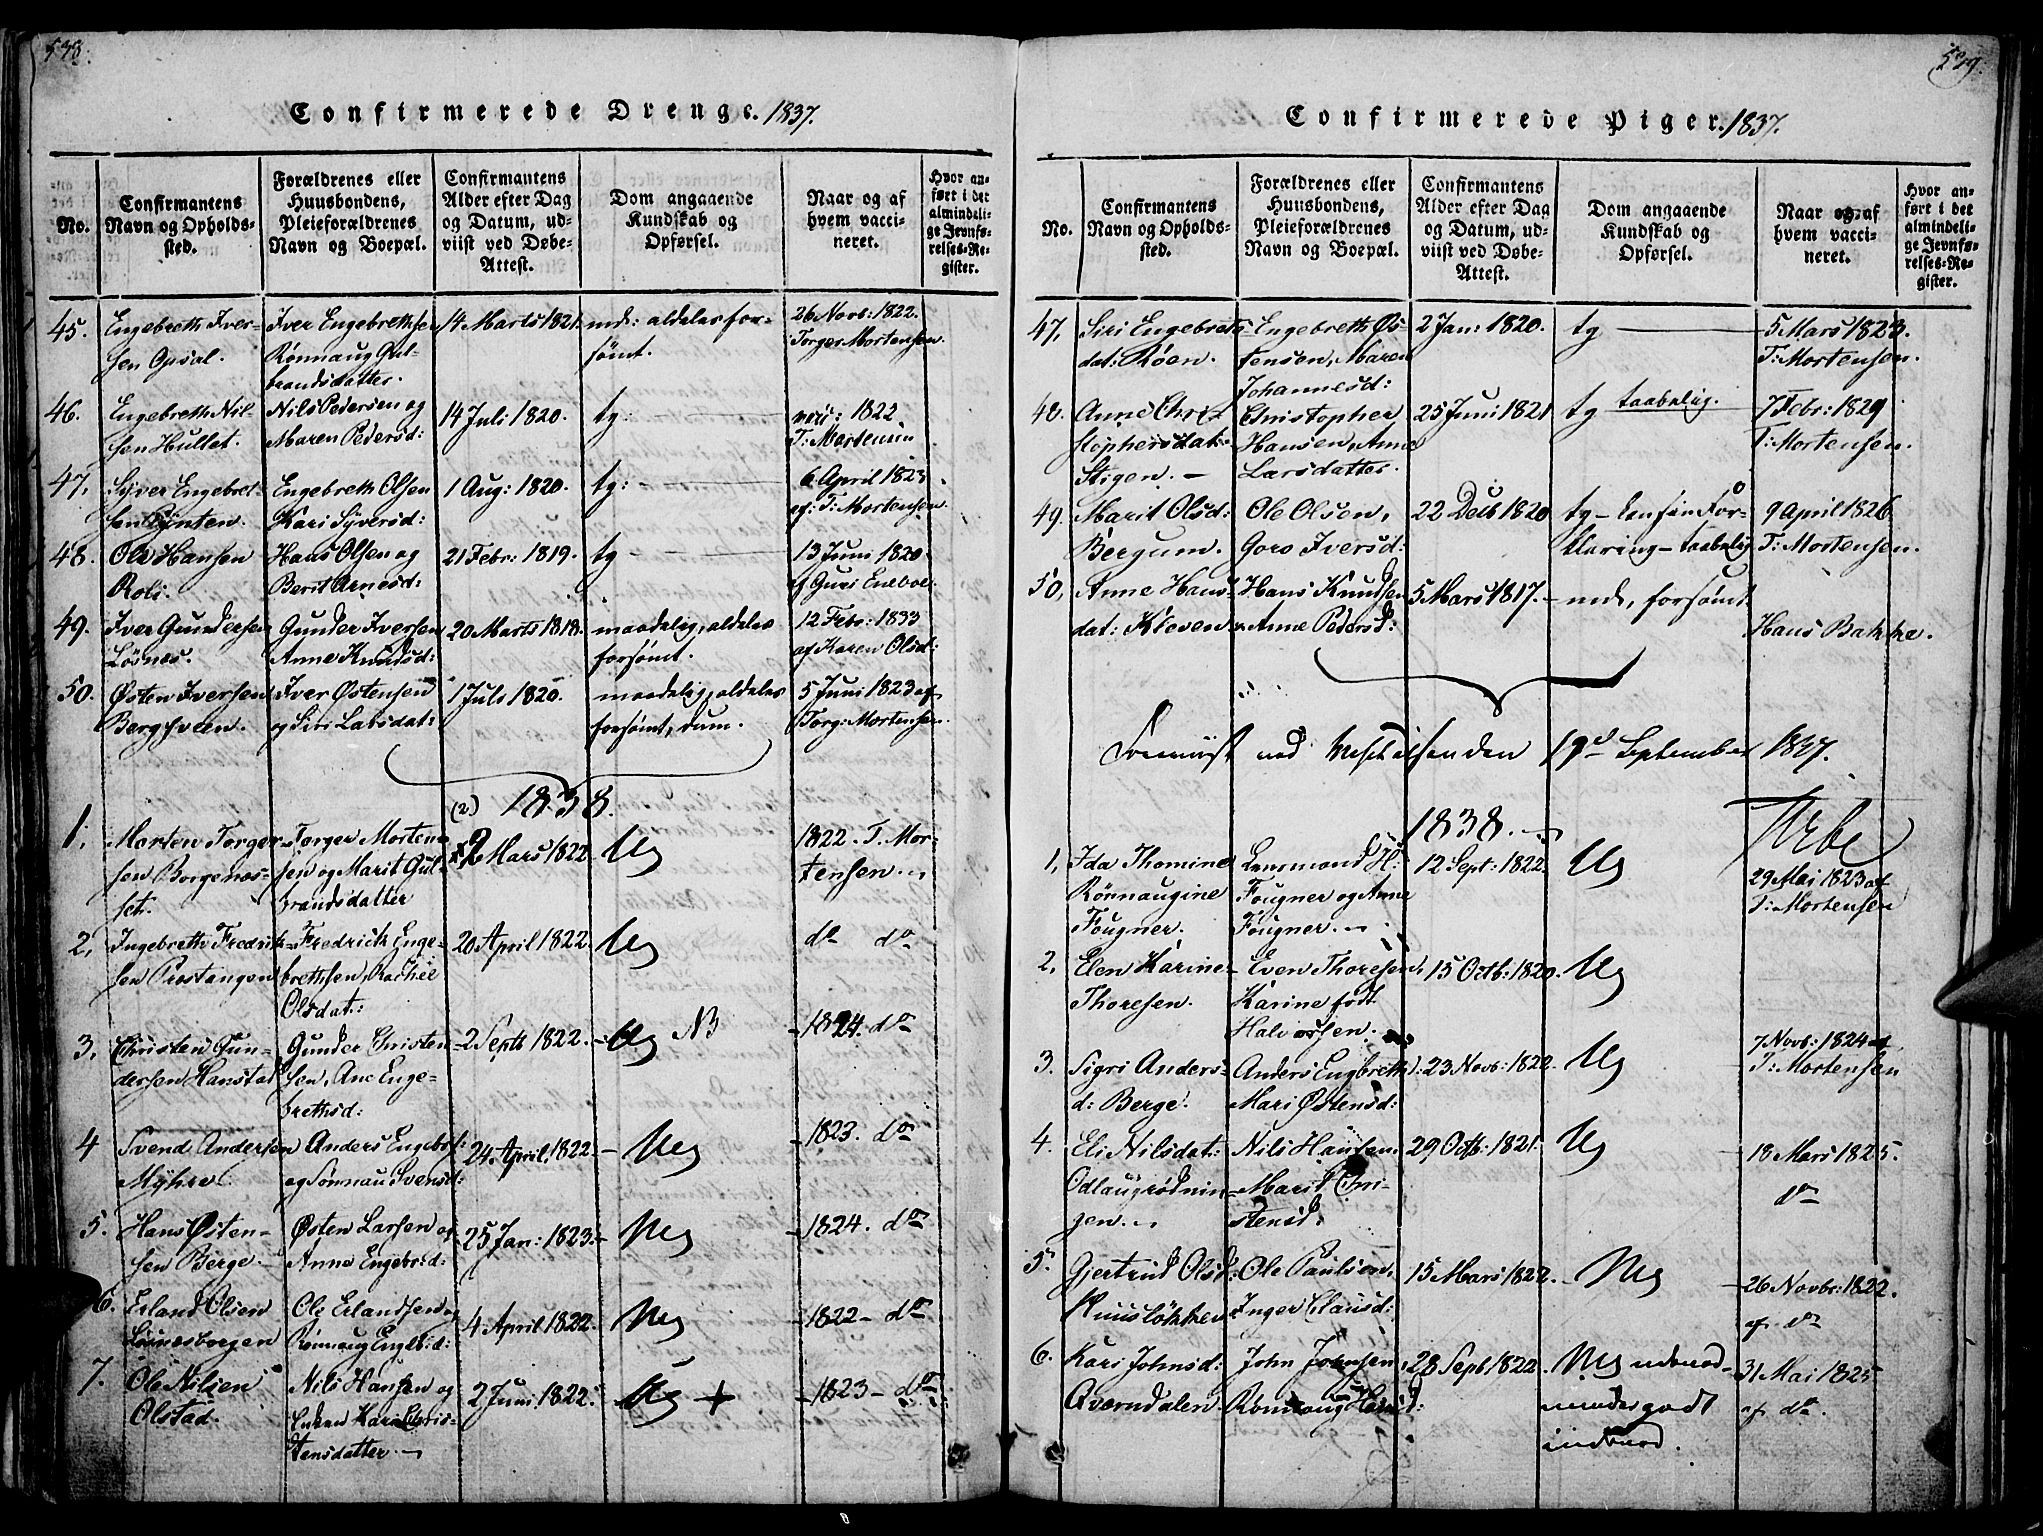 538.
Confirmerede Drenge. 1837.
No.
Confirmantens
Navn og Opholds-
sted.
Forældrenes eller
Huusbondens,
Pleieforældrenes
Navn og Boepæl.
Confirmantens
Alder efter Dag
og Datum, ud-
viist ved Døbe-
Attest.
Dom angaaende
Kundskab og
Opførsel.
Naar og af
hvem vacci-
neret.
Hvor an-
ført i det
almindeli-
ge Jevnfø-
relses-Re-
gister.
45.
Engebreth Iver-
sen Opsal.
Iver Engebrethsen
Rönnaug Gul-
brandsdatter.
14 Marts 1821.
md: aldeles for-
sömt.
26 Novb: 1822.
Torger Mortensen
46.
Engebreth Nil
sen Hullet.
Nils Pedersen og
Maren Pedersd:
14 Juli 1820.
tg:
1822
T: Mortensen
47.
Syver Engebret-
sen
Engebreth Olsen
Kari Syversd:
1 Aug: 1820.
tg:
6 April 1823
af: T: Mortensen
48.
Ole Hansen
Roli.
Hans Olsen og
Berit Arnesd:
21 Febr: 1819.
tg
13 Juni 1820
af Guri Eneboe
49.
Iver Gundersen
Lösnes.
Gunder Iversen
Anne Knudsd:
20 Marts 1818.
maadelig, aldeles
forsömt.
12 Febr: 1833
af Karen Olsd:
50.
Østen Iversen
Bergsveen.
Iver Østensen
og Siri Larsdat:
1 Juli 1820.
maadelig, aldeles
forsömt, dum.
5 Juni 1823 af
Torg: Mortensen.
(2) 1838.
1.
Morten Torger
sen Borgenæs-
set.
Torger Morten
sen og Marit Gul-
brandsdatter
2 Mars 1822
Mg
1822. T. Mor-
tensen
2,
Ingebreth Fredrik-
sen Prestangen
Fredrich Enge-
brethsen, Rachel
Olsdat:
20 April 1822.
Mg
do do
3,
Christen Gun-
dersen Hanstad
Gunder Christen-
sen, Ane Enge-
brethsd:
2 Septb 1822.
Mg NB
1824. do
4
Svend Andersen
Myhre.
Anders Engebr:
og Svensd:
24 April, 1822.
Mg
1823. do
5.
Hans Østen-
sen Berge.
Østen Larsen og
Anne Engebr:d:
25 Jan: 1823.
Mg
1824. do
6.
Erland Olsen
Lösnesborgen
Ole Erlandsen og
Rönnaug Englb:d:
4 April 1822.
Mg
1822 - do
7.
Ole Nilsen
Olstad.
Nils Hansen og
Kari Chris-
tensdatter.
2 Juni 1822.
Mg +
1823 - do
539.
Confirmerede Piger. 1837.
No.
Confirmantens
Navn og Opholds-
sted.
Forældrenes eller
Huusbondens,
Pleieforældrenes
Navn og Boepæl.
Confirmantens
Alder efter Dag
og Datum, ud-
viist ved Døbe-
Attest.
Dom angaaende
Kundskab og
Opførsel.
Naar og af
hvem vacci-
neret.
Hvor an-
ført i det
almindeli-
ge Jevnfø-
relses-Re-
gister.
47.
Siri Engebrets-
dat: Röen.
Engebreth Øs-
tensen, Maren
Johannesd:
2 Jan: 1820.
tg
5 Mars 1823.
T: Mortensen.
48.
Anne Chri-
stophersdat:
Stigen.
Christopher
Hansen, Anne
Larsdatter.
25 Juni 1821
tg taabelig.
7 Febr: 1829
T: Mortensen.
49.
Marit Olsd:
Bergum.
Ole Olsen,
Goro Iversd:
22 Decb 1820
tg - For-
klaring - taabelig
9 April 1826
T: Mortensen.
50,
Anne Hans-
dat: Kleven
Hans Knudsen
Anne Pedersd:
5 Mars 1817.
md, forsömt
Hans Bakke.
Foreviist ved den 19d September 1837.
Urbe
1838.
1,
Ida Thomine
Rönnaugine
Fougner.
Lensmand H:
Fougner og Anne
Fougner.
12 Sept: 1822.
Mg
29 Mai 1823 af
T: Mortensen
2,
Elen Karine
Thoresen.
Even Thoresen,
Karine född
Halvorsen.
15 Octb: 1820.
Mg
3.
Sigri Anders-
d: Berge.
Anders Engbreth
Mari Østensd:
23 Novb: 1822.
Mg
7 Novb: 1824 af
T: Mortensen
4.
Eli Nilsdat:
Odlaugrödnin-
gen.
Nils Hansen
Marit Chri-
stensd:
29 Octb: 1821.
Mg
18 Mars 1825.
do
5.
Gjertrud Olsd:
Huuslökken
Ole Paulsen,
Inger Clausd:
15 Mars 1822.
Mg
26 Novbr: 1822.
af do
6.
Kari Johnsd:
Averndalen.
John Johnsen
Rönnaug Hansd:
28 Sept 1822.
Mg
31 Mai 1825
af do.